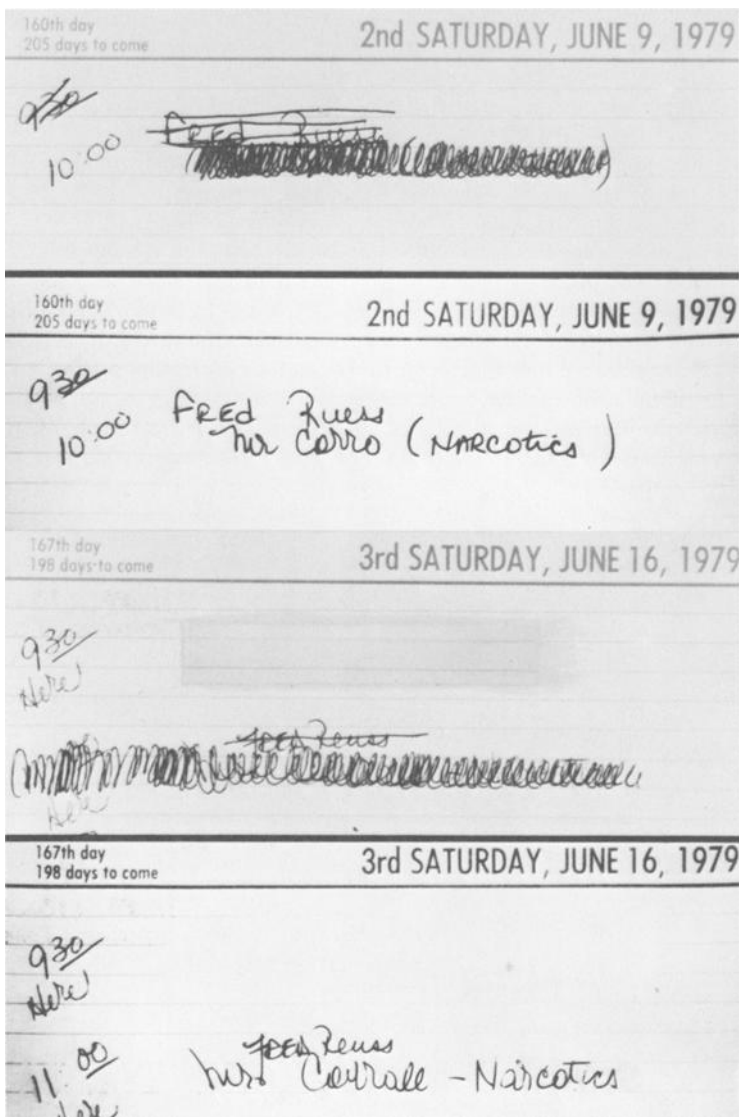 160th day
205 days to come
2nd SATURDAY, JUNE 9, 1979
930
10:00
FREd Ruess
160th day
205 days to come
2nd SATURDAY, JUNE 9, 1979
930
10:00
FREd Ruess
Mr Corro (NARCOTICS)
167th day
198 days to come
3rd SATURDAY, JUNE 16, 1979
930
Here
FREd Reuss
Here
167th day
198 days to come
3rd SATURDAY, JUNE 16, 1979
930
Here
FREd Reuss
11 00
Corrale - Narcotics
Here